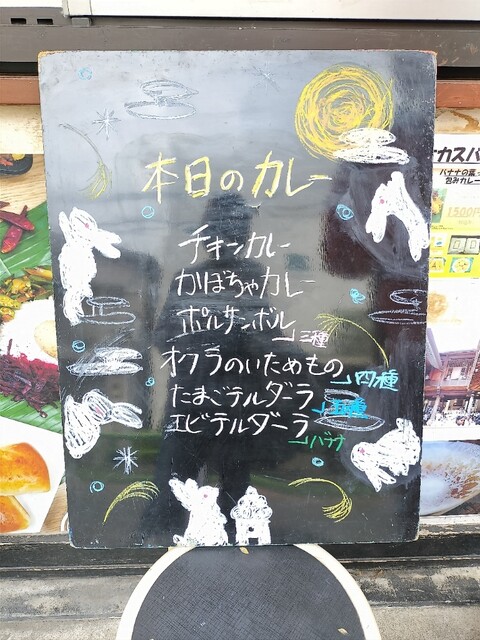 本日のカレー
チキンカレー
かぼちゃカレー
ポルサンボル
→三種
オクラのいためもの
→四種
たまごテルダーラ
→五種
エビテルダーラ
→バナナ
ナカスパ
バナナの葉
包みカレー
1,500円